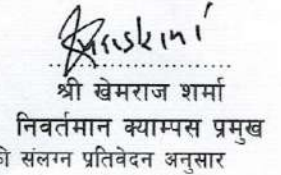 श्री खेमराज शर्मा
निवर्तमान क्याम्पस प्रमुख
संलग्न प्रतिवेदन अनुसार